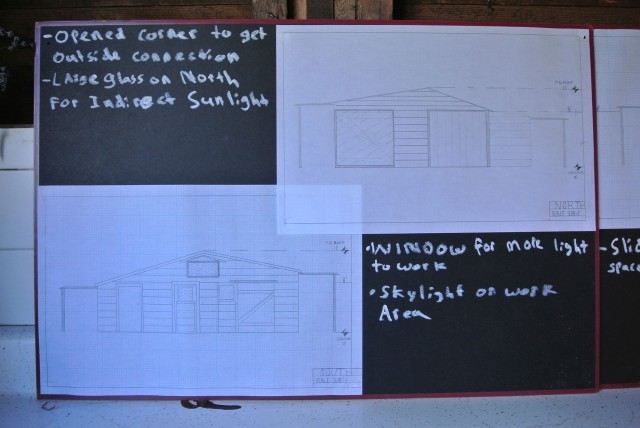 -Opened corner to get
outside connection
-Large glass on North
for Indirect Sunlight
NORTH
•WINDOW for more light
to work
•Skylight on work
Area
-Slid
space
SOUTH